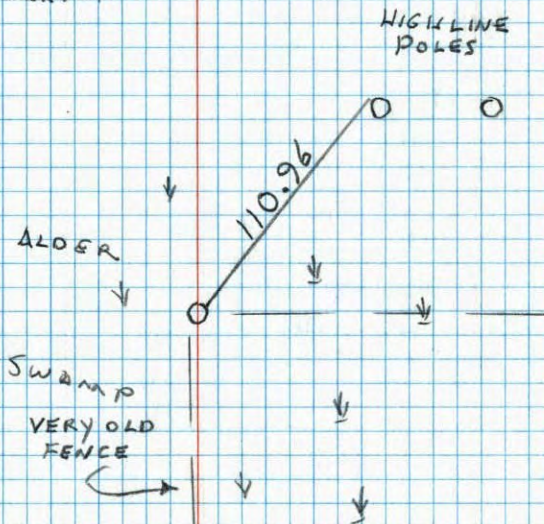 HIGHLINE
POLES
110.96
ALDER
SWAMP
VERY OLD
FENCE